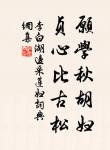 願學秋胡婦
貞心比古松
李白湖邊采蓮婦詞典
網集